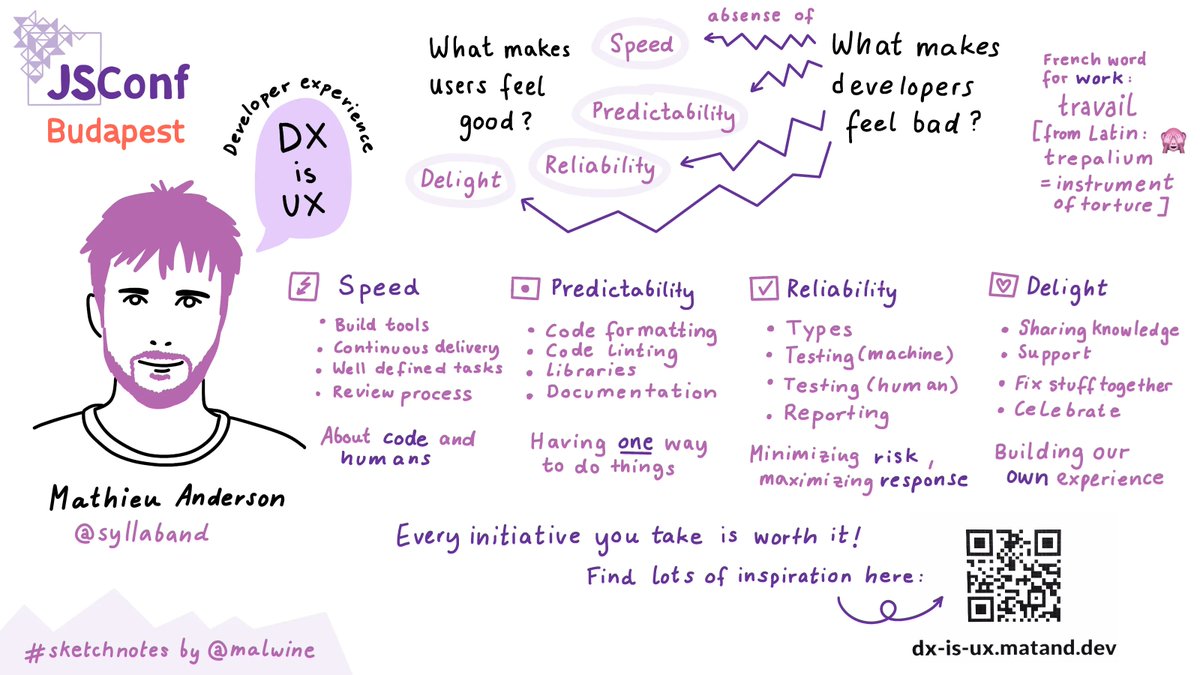 JSConf
Budapest
Developer experience
DX
is
UX
Mathieu Anderson
@syllaband
What makes
users feel
good?
Speed
Predictability
Reliability
Delight
absense of
What makes
developers
feel bad?
French word
for work:
travail
[from Latin:
trepalium
= instrument
of torture]
Speed
• Build tools
• Continuous delivery
• Well defined tasks
• Review process
About code and
humans
Predictability
• Code formatting
• Code linting
• Libraries
• Documentation
Having one way
to do things
Reliability
• Types
• Testing (machine)
• Testing (human)
• Reporting
Minimizing risk,
maximizing response
Delight
• Sharing knowledge
• Support
• Fix stuff together
• Celebrate
Building our
own experience
Every initiative you take is worth it!
Find lots of inspiration here:
dx-is-ux.matand.dev
#sketchnotes by @malwine